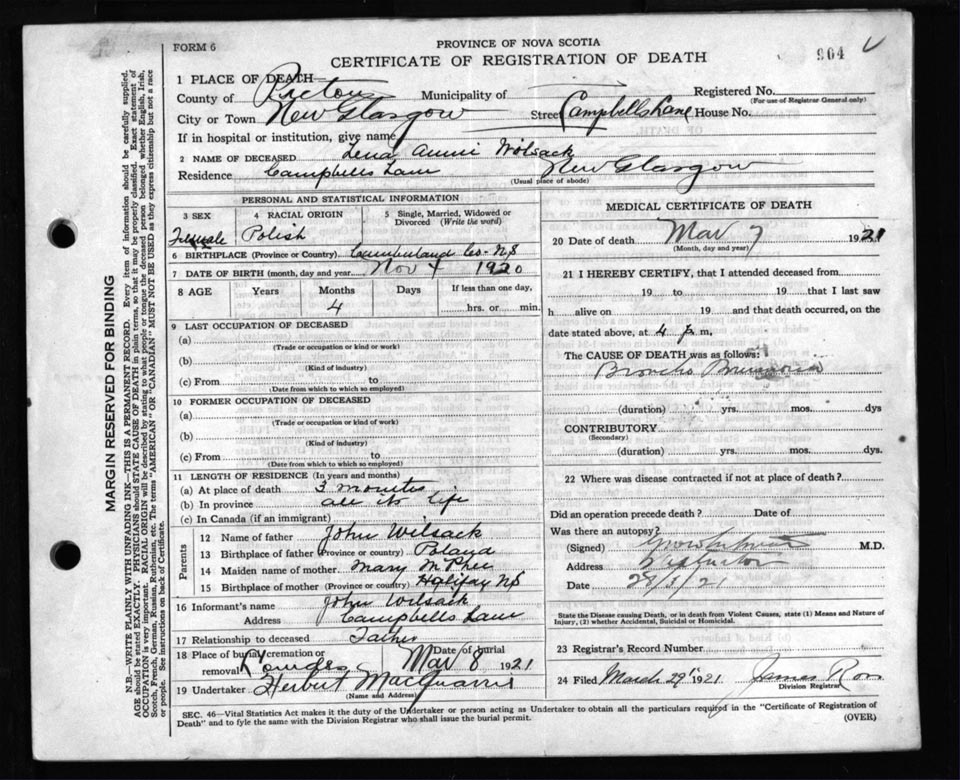 FORM 6
PROVINCE OF NOVA SCOTIA
CERTIFICATE OF REGISTRATION OF DEATH
904
1 PLACE OF DEATH—
County of Pictou Municipality of Registered No.
(For use of Registrar General only)
City or Town New Glasgow Street Campbells Lane House No.
If in hospital or institution, give name
2 NAME OF DECEASED Lena Annie Wolsack
Residence Campbells Lane New Glasgow
(Usual place of abode)
PERSONAL AND STATISTICAL INFORMATION
3 SEX 4 RACIAL ORIGIN 5 Single, Married, Widowed or Divorced (Write the word)
Female Polish
6 BIRTHPLACE (Province or Country) Cumberland Co- NS
7 DATE OF BIRTH (month, day and year Nov 4 1920
8 AGE Years Months Days If less than one day,
4 hrs. or min.
9 LAST OCCUPATION OF DECEASED
(a)
(Trade or occupation or kind or work)
(b)
(Kind of industry)
(c) From to
(Date from which to which so employed)
10 FORMER OCCUPATION OF DECEASED
(a)
(Trade or occupation or kind of work)
(b)
(Kind of industry)
(c) From to
(Date from which to which so employed)
11 LENGTH OF RESIDENCE (In years and months)
(a) At place of death 3 months
(b) In province all its life
(c) In Canada (if an immigrant)
Parents
12 Name of father John Wilsack
13 Birthplace of father (Province or country) Poland
14 Maiden name of mother Mary McPhee
15 Birthplace of mother (Province or country) Halifax NS
16 Informant's name John Wilsack
Address Campbells Lane
17 Relationship to deceased Father
18 Place of burial, cremation or removal Date of burial Mar 8 1921
19 Undertaker Herbert MacQuarrie
(Name and Address)
MEDICAL CERTIFICATE OF DEATH
20 Date of death Mar 7 1921
(Month, day and year)
21 I HEREBY CERTIFY, that I attended deceased from
19 to 19 that I last saw
h alive on 19 and that death occurred, on
the date stated above, at 4 p m.
The CAUSE OF DEATH was as follows:
Broncho Pneumonia
(duration) yrs. mos. dys
CONTRIBUTORY
(Secondary)
(duration) yrs. mos. dys.
22 Where was disease contracted if not at place of death?
Did an operation precede death? Date of
Was there an autopsy?
(Signed) M.D.
Address
Date 28/3/21
State the Disease causing Death, or in death from Violent Causes, state (1) Means and Nature of Injury, (2) whether Accidental, Suicidal or Homicidal.
23 Registrar's Record Number
24 Filed March 29th 1921 James Ross
Division Registrar
SEC. 46—Vital Statistics Act makes it the duty of the Undertaker or person acting as Undertaker to obtain all the particulars required in the "Certificate of Registration of
Death" and to fyle the same with the Division Registrar who shall issue the burial permit.
(OVER)
MARGIN RESERVED FOR BINDING
N.B.—WRITE PLAINLY WITH UNFADING INK—THIS IS A PERMANENT RECORD. Every item of information should be carefully supplied.
AGE should be stated EXACTLY. PHYSICIANS should STATE CAUSE OF DEATH in plain terms, so that it may be properly classified. Exact statement of
OCCUPATION is very important. RACIAL ORIGIN will be described by stating to what people or tongue the deceased person belonged whether English, Irish,
Scotch, French, German, Russian, Ruthenian, etc. The terms "AMERICAN" OR "CANADIAN" MUST NOT BE USED as they express citizenship but not a race
or people. See instructions on back of Certificate.